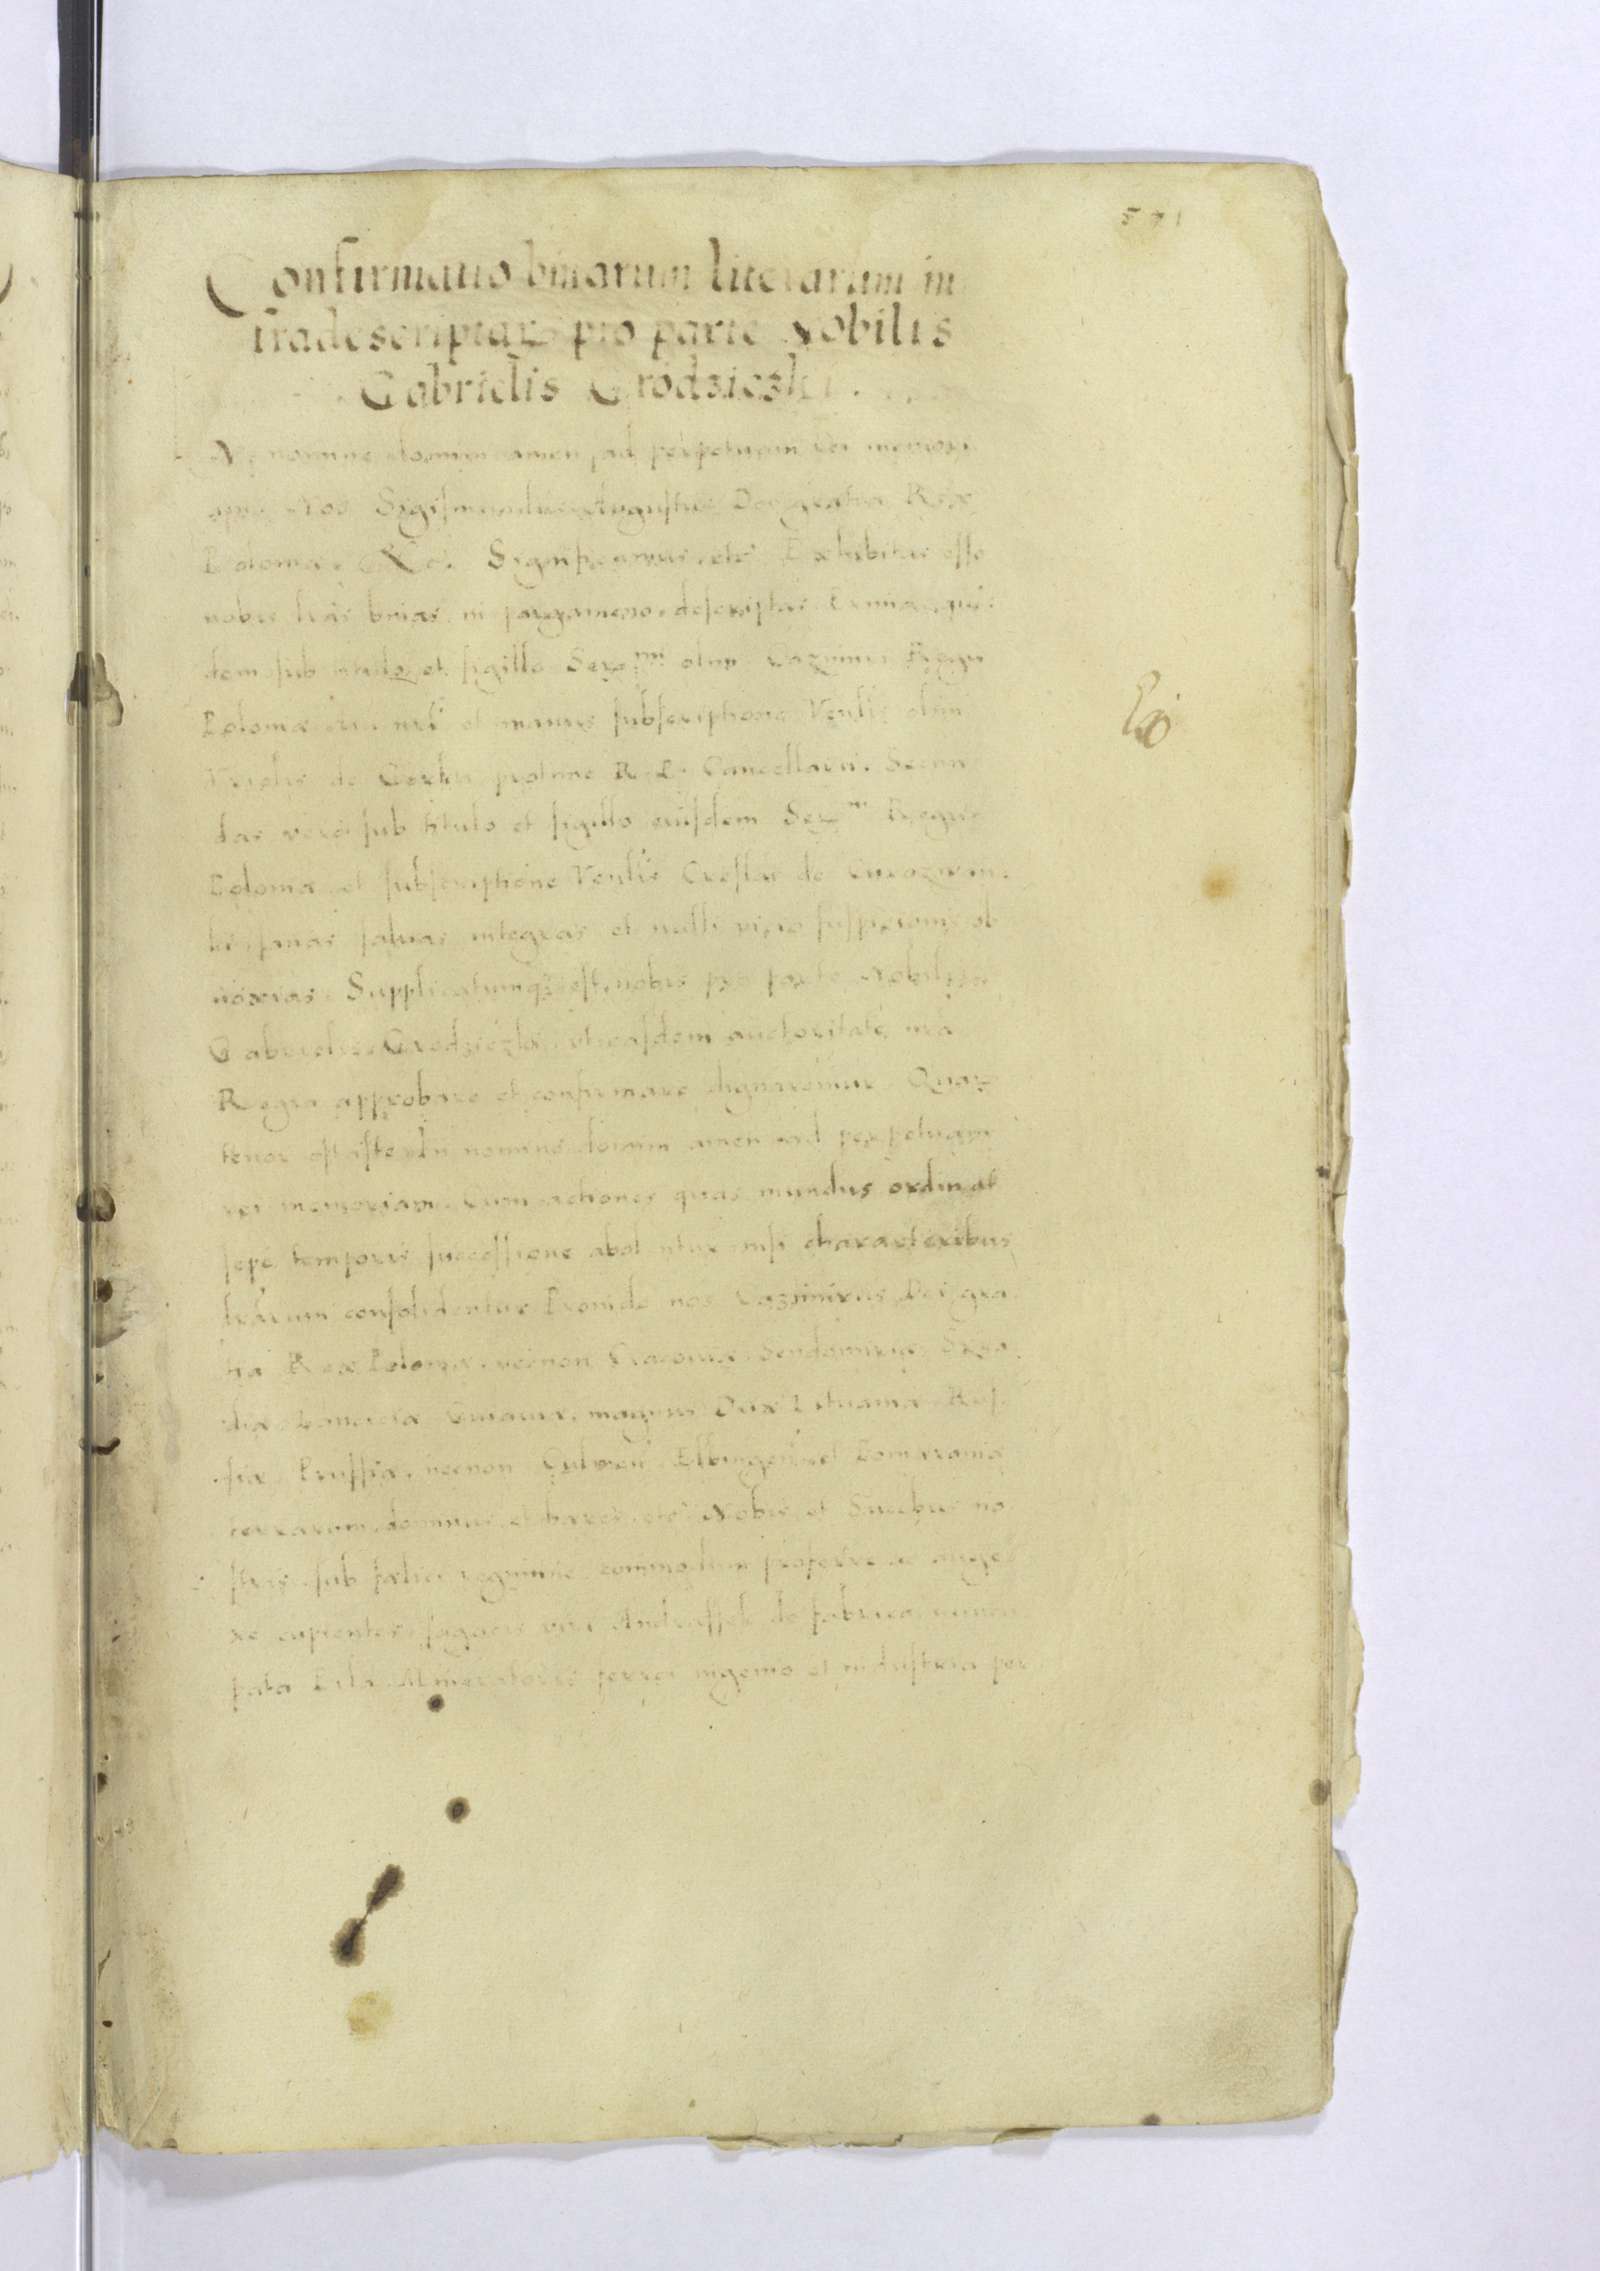 571
Confirmatio binarum literarum in
fradescriptarz pro parte Nobilis
Gabrielis Grodzieczki.
nomine domini amen, ad perpetuam rei memori
Nos Sigismundus Augustus Dei gratia Rex
Poloniæ etc. Significamus etc. Exhibitas esse
nobis lr̃as binas in pargameno descriptas Primas qui
dem sub titulo et sigillo Ser^mi olim Cazimiri Regis
Poloniæ et manus subscriptione olim
de protunc R. P. Cancellarii. Secun
das vero sub titulo et sigillo eiusdem Ser^mi Regis
Poloniæ et subscriptione Creslai de Curozwan
ki sanas saluas integras et nulli vitio suspicionis ob
noxias. Supplicatumq3 est nobis pro parte Nobilis
Gabrielis Grodzieczki vt easdem auctoritate nr̃a
Regia approbare et confirmare dignaremur. Quarz
tenor est iste. In nomine domini amen ad perpetuam
rei memoriam. Cum actiones quas mundus ordinat
sepe temporis successione abolentur nisi characteribus
lr̃arum consolidentur Proinde nos Cazimirus Dei gra
tia Rex Poloniæ. necnon Cracoviæ. Sendomiriæ. Sira
diæ. Lanciciæ Cuiaviæ. magnus Dux Lituaniæ. Rus
siæ. Prussiæ. necnon Culmen̄. Elbingen̄. et Pomeraniæ
terrarum dominus et hæres etc. Nobis et Succbus no
stris sub fœlici regimine commodum proferre et auge
re cupientes. sagacis viri de fabrica nuncu
pata Pila Mineratoris ferri ingenio et industria per